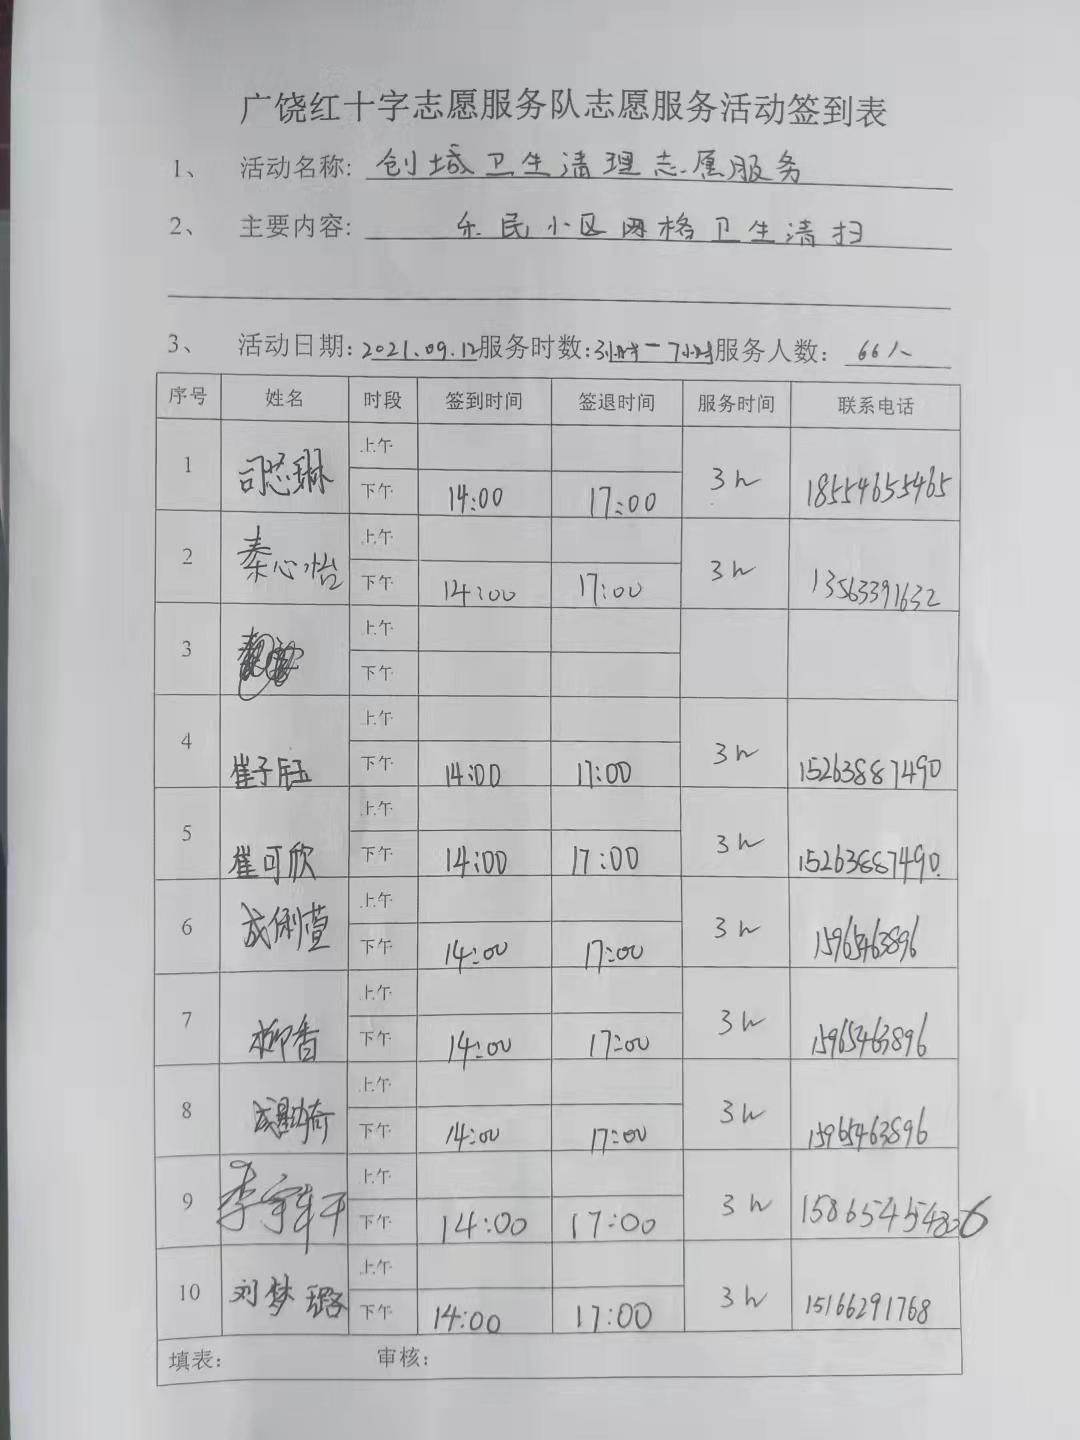 广饶红十字志愿服务队志愿服务活动签到表
1、 活动名称: 创城卫生清理志愿服务
2、 主要内容: 乐民小区网格卫生清扫
3、 活动日期: 2021.09.12 服务时数: 3小时一7小时 服务人数: 66人
序号 姓名 时段 签到时间 签退时间 服务时间 联系电话
1 司芯琳 上午
下午 14:00 17:00 3h 18554655465
2 秦心怡 上午
下午 14:00 17:00 3h 13563391632
3 上午
下午
4 崔子钰 上午
下午 14:00 17:00 3h 15263887490
5 崔可欣 上午
下午 14:00 17:00 3h 15263887490
6 成俐萱 上午
下午 14:00 17:00 3h 15965463896
7 柳香 上午
下午 14:00 17:00 3h 15965463896
8 上午
下午 14:00 17:00 3h 15965463896
9 李宇轩 上午
下午 14:00 17:00 3h
10 刘梦璐 上午
下午 14:00 17:00 3h 15166291768
填表: 审核: